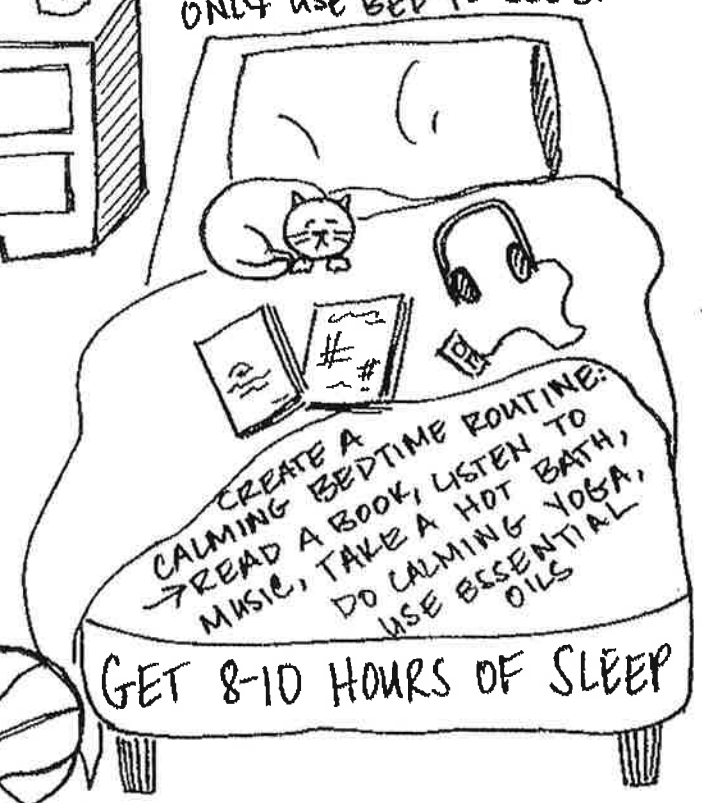 ONLY USE BED TO
CREATE A
CALMING BEDTIME ROUTINE:
→READ A BOOK, LISTEN TO
MUSIC, TAKE A HOT BATH,
DO CALMING YOGA,
USE ESSENTIAL
OILS
GET 8-10 HOURS OF SLEEP